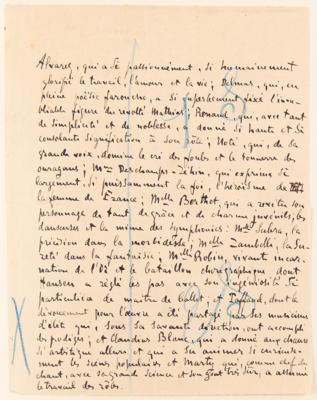 Alvarez, qui a si passionnément, si humainement
glorifié le travail, l'amour et la vie; Delmas, qui, en
pleine poésie farouche, a si superbement fixé l'inou-
bliable figure du révolté Mathias; Renaud, qui, avec tant
de simplicité et de noblesse, a donné si haute et si
consolante signification à son rôle; Noté, qui, de sa
grande voix, domine le cri des foules et le tonnerre des
ouragans; Mme Deschamps-Jehin, qui exprime si
largement, si puissamment la foi, l'héroïsme de
la femme de France; Melle Berthet, qui a revêtu son
personnage de tant de grâce et de charme juvénils; les
danseuses et la mime des symphonies: Melle Subra, la
précision dans la morbidesse; Melle Zambelli, la su-
reté dans la fantaisie; Melle Robin, vivant incar-
nation de l'Or et le bataillon chorégraphique dont
Hansen a réglé les pas avec son ingéniosité si
particulière de maître de ballet, et Taffanel, dont le
dévouement pour l'œuvre a été partagé par des musiciens
d'élite qui, sous sa savante direction, ont accompli
des prodiges; et Claudius Blanc, qui a donné aux chœurs
si artistique allure et qui a su animer si curieuse-
ment les scènes populaires et Marty qui, comme chef du
chant, avec sa grande science et son goût très sûr, a assumé
le travail des rôles.